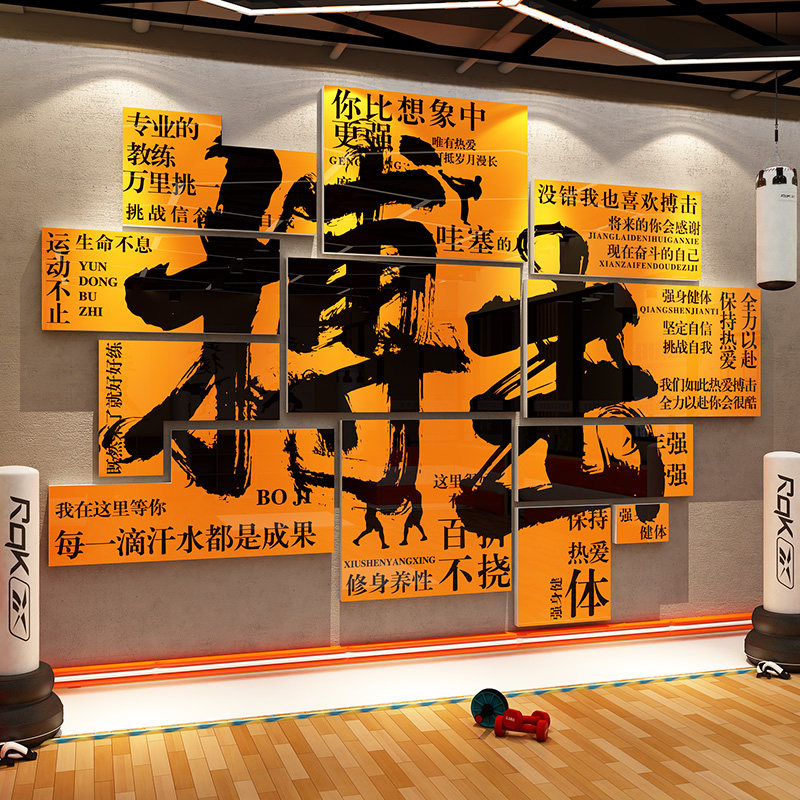 搏击
专业的
教练
万里挑一
挑战信
你比想象中
更强
唯有热爱
抵岁月漫长
哇塞的
没错我也喜欢搏击
将来的你会感谢
JIANGLAIDENIHUIGANXIE
现在奋斗的自己
XIANZAIFENDOUDEZIJI
运动不止
生命不息
YUN
DONG
BU
ZHI
强身健体
QIANGSHENJIANTI
坚定自信
挑战自我
保持热爱
全力以赴
我们如此热爱搏击
全力以赴你会很酷
了就好好练
我在这里等你
BO JI
每一滴汗水都是成果
这里
XIUSHENYANGXING
修身养性
百折
不挠
强
强
保持
热爱
强身健
体
强
健体
RQK
RQK